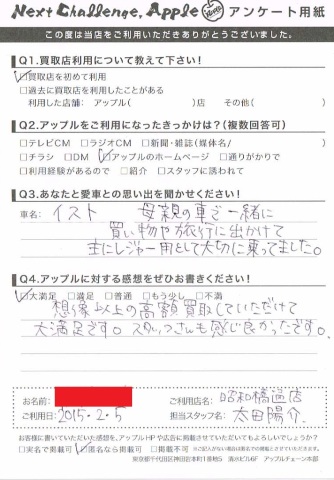 Next Challenge, Apple アンケート用紙
この度は当店をご利用いただきありがとうございました。
Q1.買取店利用について教えて下さい!
☑買取店を初めて利用
□過去に買取店を利用したことがある
利用した店舗: アップル( )店 その他( )
Q2.アップルをご利用になったきっかけは?(複数回答可)
□テレビCM □ラジオCM □新聞・雑誌(媒体名/ )
□チラシ □DM ☑アップルのホームページ □通りがかりで
□利用経験があるので □紹介 □スタッフに誘われて
Q3.あなたと愛車との思い出を聞かせください!
車名: イスト 母親の車で一緒に
買い物や旅行に出かけて
主にレジャー用として大切に乗ってました。
Q4.アップルに対する感想をぜひお書きください!
☑大満足 □満足 □普通 □もう少し □不満
想像以上の高額買取していただけて
大満足です。スタッフさんも感じ良かったです。
お名前: ご利用店名: 昭和橋通店
ご利用日: 2015・2・5 担当スタッフ名: 太田陽介
お客様に書いていただいた感想を、アップルHPや広告に掲載させていただいてもよろしいでしょうか?
□実名で掲載可 ☑匿名なら掲載可 ※ご記入がない場合は匿名での掲載とさせていただきます。
東京都千代田区神田岩本町1番地5 清水ビル6F アップルチェーン本部